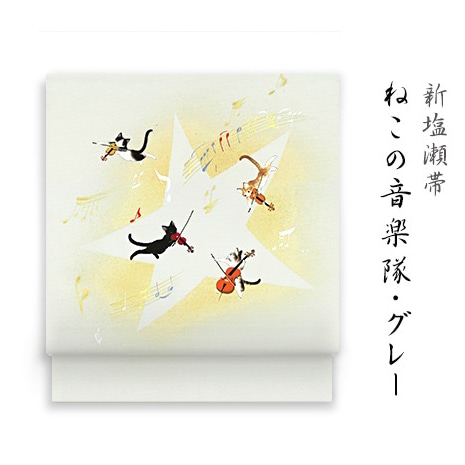 新塩瀬帯
ねこの音楽隊・グレー